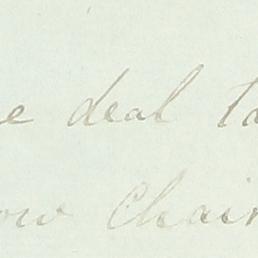 e deal ta
ow Chair